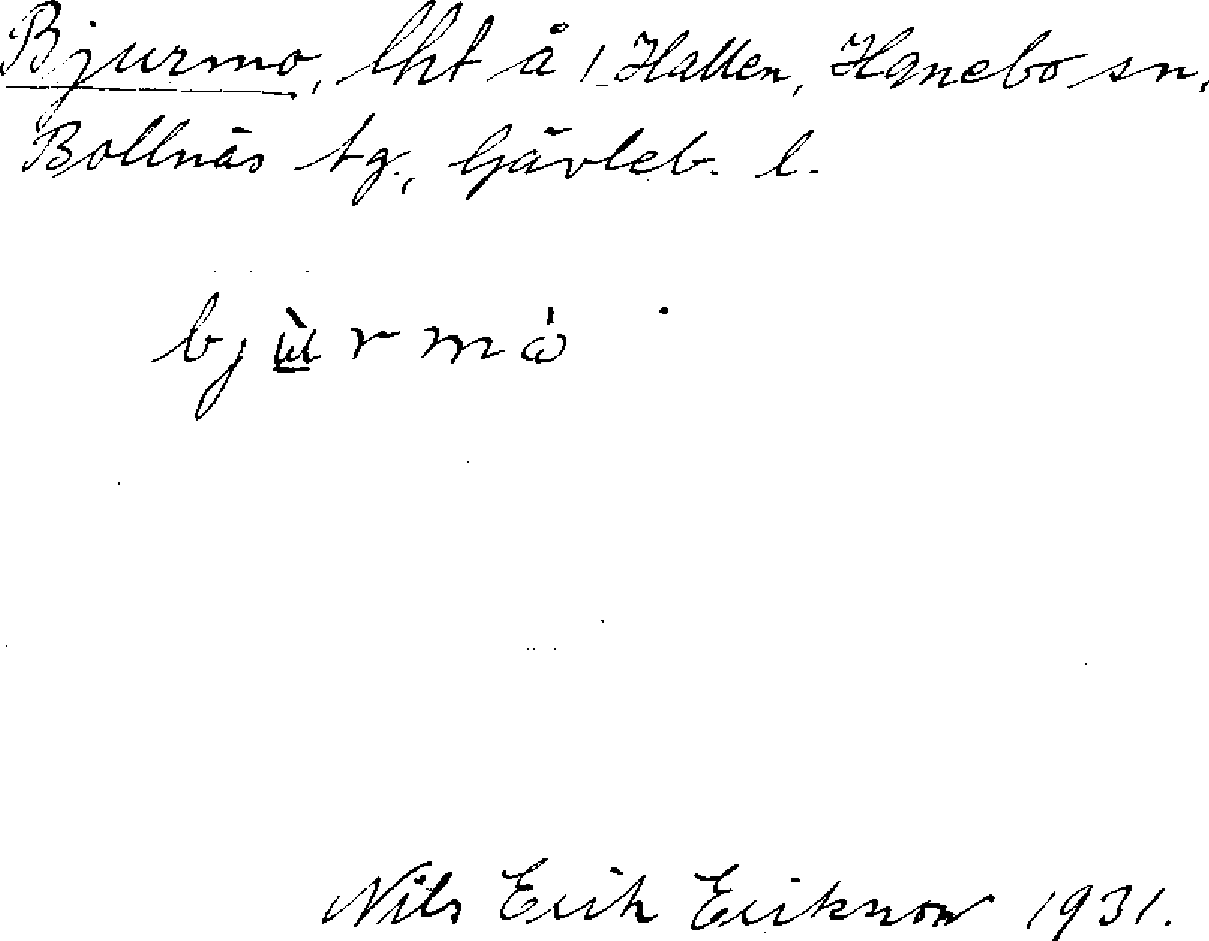 Bjurmo, lht å 1 Hallen, Hanebo sn,
Bollnäs tg., Gävleb. l.
bjùrmȧ̀
Nils Erik Eriksson 1931.